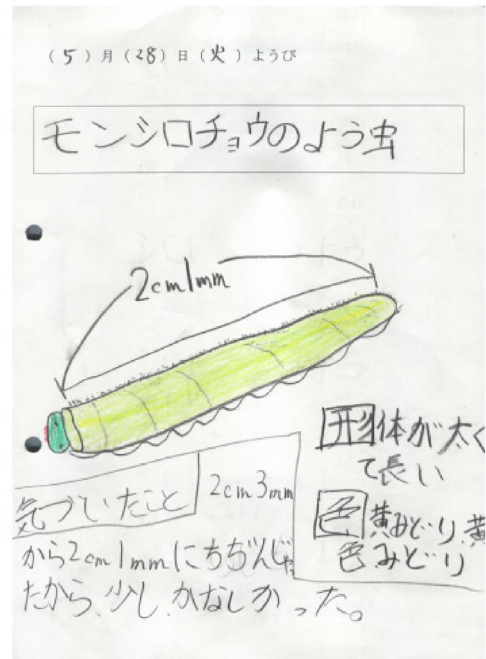 (5)月(28)日(火)ようび
モンシロチョウのよう虫
2cm1mm
形 体が太く
て長い
色 黄みどり、黄
色、みどり
気づいたこと
2cm3mm
から2cm1mmにちぢんじゃっ
たから、少し、かなしかった。